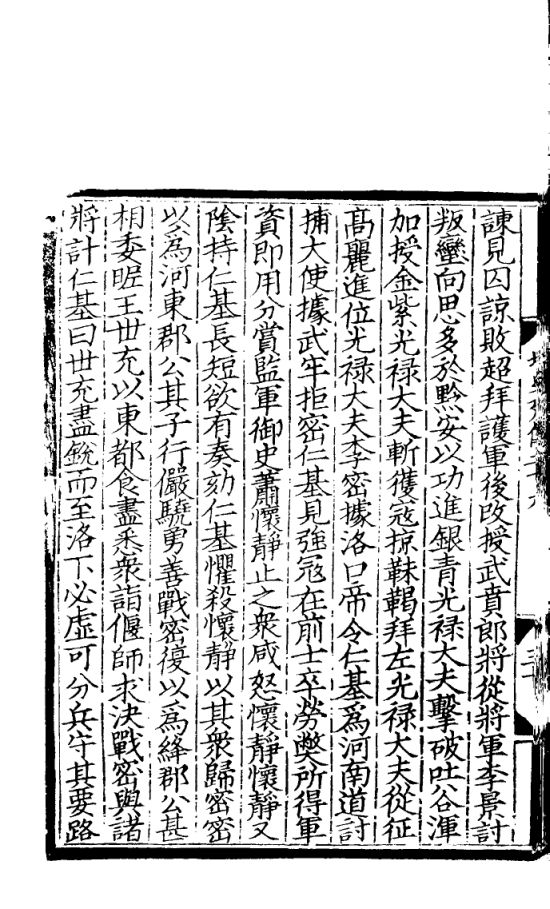 諫見囚諒敗超拜護軍後改授武賁郎將從將軍李景討
叛蠻向思多於黔安以功進銀青光禄大夫擊破吐谷渾
加授金紫光禄大夫斬獲寇掠靺鞨拜左光禄大夫從征
髙麗進位光禄大夫李密據洛口帝令仁基爲河南道討
捕大使據武牢拒密仁基見強寇在前士卒勞弊所得軍
資即用分賞監軍御史蕭懷静止之衆咸怒懷静懷静又
陰持仁基長短欲有奏劾仁基懼殺懷静以其衆歸密密
以爲河東郡公其子行儼驍勇善戰密復以爲絳郡公甚
相委昵王世充以東都食盡悉衆詣偃師求決戰密與諸
將計仁基曰世充盡銳而至洛下必虚可分兵守其要路